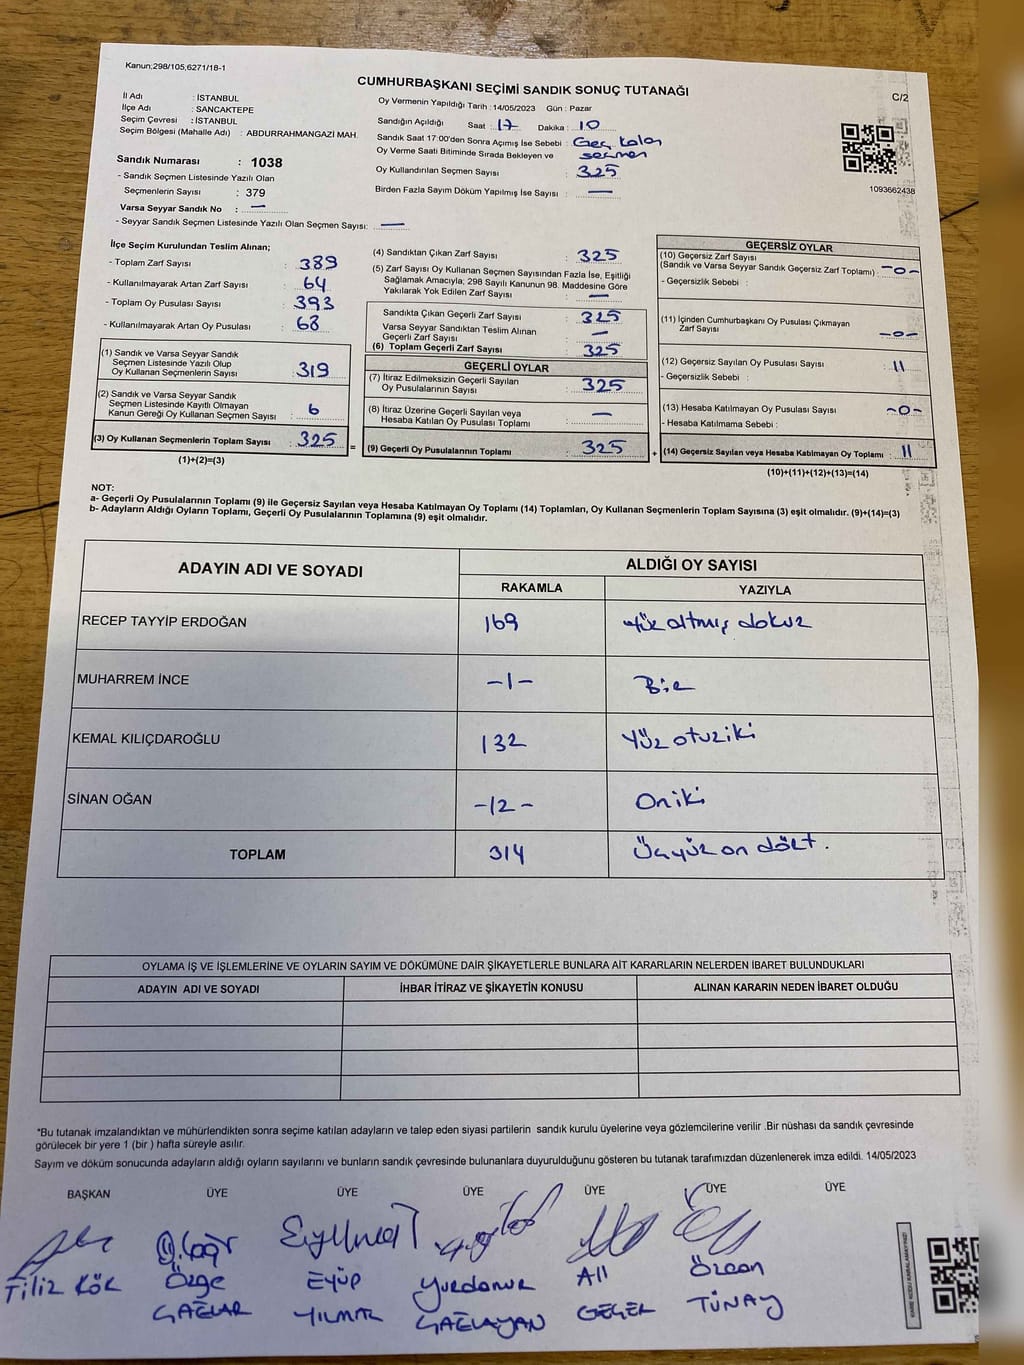 Kanun;298/105,6271/18-1
CUMHURBAŞKANI SEÇİMİ SANDIK SONUÇ TUTANAĞI
C/2
İl Adı : İSTANBUL
İlçe Adı : SANCAKTEPE
Seçim Çevresi : İSTANBUL
Seçim Bölgesi (Mahalle Adı) : ABDURRAHMANGAZİ MAH.
Sandık Numarası : 1038
- Sandık Seçmen Listesinde Yazılı Olan
Seçmenlerin Sayısı : 379
Varsa Seyyar Sandık No : —
- Seyyar Sandık Seçmen Listesinde Yazılı Olan Seçmen Sayısı: —
Oy Vermenin Yapıldığı Tarih : 14/05/2023 Gün : Pazar
Sandığın Açıldığı Saat : 17 Dakika : 10
Sandık Saat 17:00'den Sonra Açımış İse Sebebi : Geç kalan
Oy Verme Saati Bitiminde Sırada Bekleyen ve seçmen
Oy Kullandırılan Seçmen Sayısı : 325
Birden Fazla Sayım Döküm Yapılmış İse Sayısı : —
1093662438
İlçe Seçim Kurulundan Teslim Alınan;
- Toplam Zarf Sayısı : 389
- Kullanılmayarak Artan Zarf Sayısı : 64
- Toplam Oy Pusulası Sayısı : 393
- Kullanılmayarak Artan Oy Pusulası : 68
(1) Sandık ve Varsa Seyyar Sandık
Seçmen Listesinde Yazılı Olup
Oy Kullanan Seçmenlerin Sayısı : 319
(2) Sandık ve Varsa Seyyar Sandık
Seçmen Listesinde Kayıtlı Olmayan
Kanun Gereği Oy Kullanan Seçmen Sayısı : 6
(3) Oy Kullanan Seçmenlerin Toplam Sayısı : 325 =
(1)+(2)=(3)
(4) Sandıktan Çıkan Zarf Sayısı : 325
(5) Zarf Sayısı Oy Kullanan Seçmen Sayısından Fazla İse, Eşitliği
Sağlamak Amacıyla; 298 Sayılı Kanunun 98. Maddesine Göre
Yakılarak Yok Edilen Zarf Sayısı : —
Sandıkta Çıkan Geçerli Zarf Sayısı : 325
Varsa Seyyar Sandıktan Teslim Alınan
Geçerli Zarf Sayısı : —
(6) Toplam Geçerli Zarf Sayısı 325
GEÇERLİ OYLAR
(7) İtiraz Edilmeksizin Geçerli Sayılan
Oy Pusulalarının Sayısı : 325
(8) İtiraz Üzerine Geçerli Sayılan veya
Hesaba Katılan Oy Pusulası Toplamı : —
(9) Geçerli Oy Pusulalarının Toplamı : 325 +
GEÇERSİZ OYLAR
(10) Geçersiz Zarf Sayısı
(Sandık ve Varsa Seyyar Sandık Geçersiz Zarf Toplamı) : -0-
- Geçersizlik Sebebi :
(11) İçinden Cumhurbaşkanı Oy Pusulası Çıkmayan
Zarf Sayısı : -0-
(12) Geçersiz Sayılan Oy Pusulası Sayısı : 11
- Geçersizlik Sebebi :
(13) Hesaba Katılmayan Oy Pusulası Sayısı : -0-
- Hesaba Katılmama Sebebi :
(14) Geçersiz Sayılan veya Hesaba Katılmayan Oy Toplamı : 11
(10)+(11)+(12)+(13)=(14)
NOT:
a- Geçerli Oy Pusulalarının Toplamı (9) ile Geçersiz Sayılan veya Hesaba Katılmayan Oy Toplamı (14) Toplamları, Oy Kullanan Seçmenlerin Toplam Sayısına (3) eşit olmalıdır. (9)+(14)=(3)
b- Adayların Aldığı Oyların Toplamı, Geçerli Oy Pusulalarının Toplamına (9) eşit olmalıdır.
ADAYIN ADI VE SOYADI
ALDIĞI OY SAYISI
RAKAMLA YAZIYLA
RECEP TAYYİP ERDOĞAN 169 Yüz altmış dokuz
MUHARREM İNCE -1- Bir
KEMAL KILIÇDAROĞLU 132 Yüz otuziki
SİNAN OĞAN -12- Oniki
TOPLAM 314 Üçyüz on dört.
OYLAMA İŞ VE İŞLEMLERİNE VE OYLARIN SAYIM VE DÖKÜMÜNE DAİR ŞİKAYETLERLE BUNLARA AİT KARARLARIN NELERDEN İBARET BULUNDUKLARI
ADAYIN ADI VE SOYADI İHBAR İTİRAZ VE ŞİKAYETİN KONUSU ALINAN KARARIN NEDEN İBARET OLDUĞU
*Bu tutanak imzalandıktan ve mühürlendikten sonra seçime katılan adayların ve talep eden siyasi partilerin sandık kurulu üyelerine veya gözlemcilerine verilir .Bir nüshası da sandık çevresinde
görülecek bir yere 1 (bir ) hafta süreyle asılır.
Sayım ve döküm sonucunda adayların aldığı oyların sayılarını ve bunların sandık çevresinde bulunanlara duyurulduğunu gösteren bu tutanak tarafımızdan düzenlenerek imza edildi. 14/05/2023
BAŞKAN ÜYE ÜYE ÜYE ÜYE ÜYE ÜYE
Filiz KÖK Özge EYÜP Yurdanur Ali Özcan
ÇAĞLAR YILMAZ ÇAĞLAYAN GEÇER TÜNAY